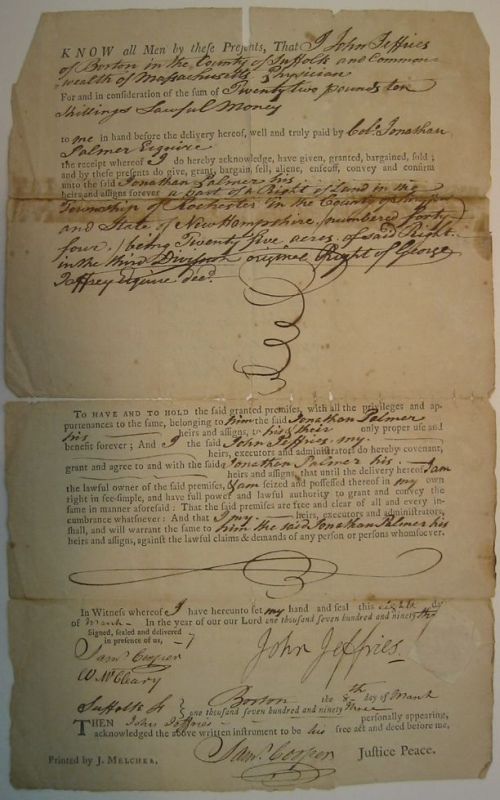 KNOW all Men by these Presents, That I John Jeffries
of Boston in the County of Suffolk and Common
wealth of Massachusetts Physician
For and in consideration of the sum of Twenty two pounds ten
shillings Lawful Money
to me in hand before the delivery hereof, well and truly paid by Col.o Jonathan
Palmer Esquire
the receipt whereof I do hereby acknowledge, have given, granted, bargained, sold;
and by these presents do give, grant, bargain, sell, aliene, enfeoff, convey and confirm
unto the said Jonathan Palmer his
heirs and assigns forever a part of a Right of Land in the
Township of Rochester in the County of
and State of New Hampshire, numbered forty
four, being Twenty five acres of said Right
in the third Division original Right of George
Jaffrey Esquire dec.d
TO HAVE AND TO HOLD the said granted premises, with all the privileges and ap-
purtenances to the same, belonging to him the said Jonathan Palmer
his heirs and assigns, to his & their only proper use and
benefit forever; And I the said John Jeffries, my
heirs, executors and administrators do hereby covenant,
grant and agree to and with the said Jonathan Palmer his
heirs and assigns, that until the delivery hereof I am
the lawful owner of the said premises, & am seized and possessed thereof in my own
right in fee-simple, and have full power and lawful authority to grant and convey the
same in manner aforesaid: That the said premises are free and clear of all and every in-
cumbrance whatsoever: And that I my heirs, executors and administrators,
shall, and will warrant the same to him the said Jonathan Palmer his
heirs and assigns, against the lawful claims & demands of any person or persons whomsoever.
In Witness whereof I have hereunto set my hand and seal this eighth day
of March In the year of our Lord one thousand seven hundred and ninety
Signed, sealed and delivered
in presence of us,
Sam.l Cooper
W. McCleary
John Jeffries.
Suffolk ss Boston the 8th day of March
one thousand seven hundred and ninety three
THEN John Jeffries personally appearing,
acknowledged the above written instrument to be his free act and deed before me,
Sam.l Cooper Justice Peace.
Printed by J. MELCHER.